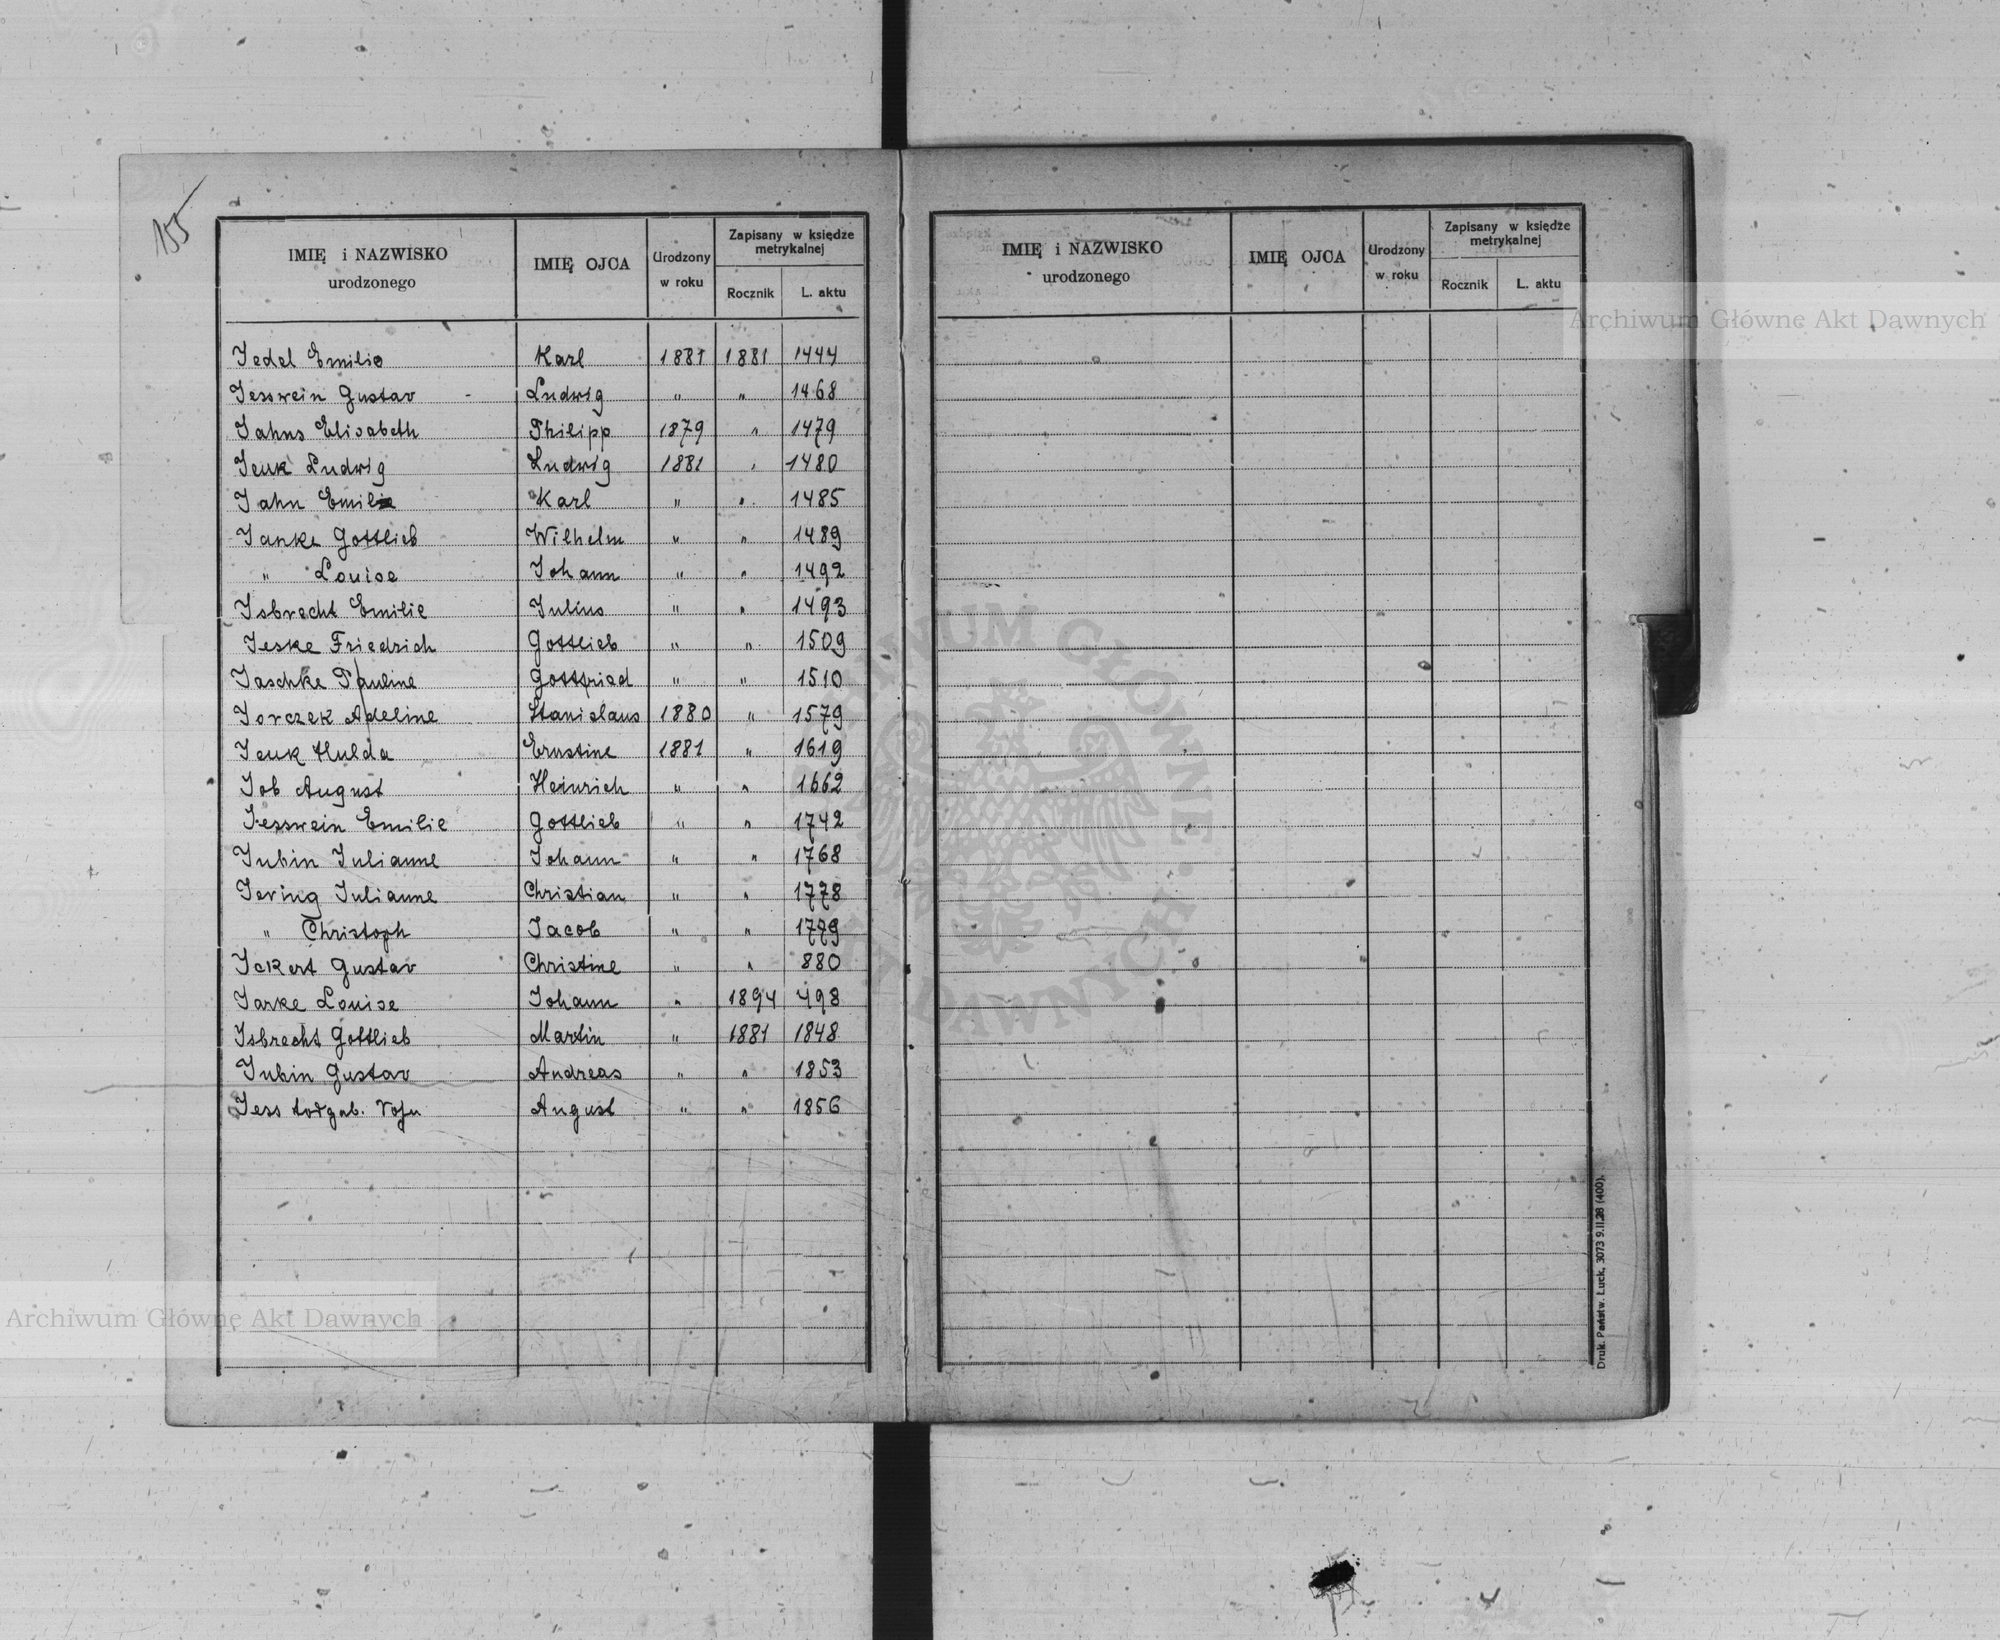 155
IMIĘ i NAZWISKO urodzonego | IMIĘ OJCA | Urodzony w roku | Zapisany w księdze metrykalnej
Rocznik | L. aktu
Jedel Emilie | Karl | 1881 | 1881 | 1444
Jesswein Gustav | Ludwig | " | " | 1468
Jahns Elisabeth | Philipp | 1879 | " | 1479
Jeuk Ludwig | Ludwig | 1881 | " | 1480
Jahn Emilie | Karl | " | " | 1485
Janke Gottlieb | Wilhelm | " | " | 1489
" Louise | Johann | " | " | 1492
Isbrecht Emilie | Julius | " | " | 1493
Jeske Friedrich | Gottlieb | " | " | 1509
Jaschke Pauline | Gottfried | " | " | 1510
Jorczek Adeline | Stanislaus | 1880 | " | 1579
Jeuk Hulda | Ernstine | 1881 | " | 1619
Job August | Heinrich | " | " | 1662
Jesswein Emilie | Gottlieb | " | " | 1742
Jubin Julianne | Johann | " | " | 1768
Jering Julianne | Christian | " | " | 1778
" Christoph | Jacob | " | " | 1779
Ickert Gustav | Christine | " | " | 880
Jarke Louise | Johann | " | 1894 | 498
Isbrecht Gottlieb | Martin | " | 1881 | 1848
Jubin Gustav | Andreas | " | " | 1853
Jess todgeb. Sohn | August | " | " | 1856
IMIĘ i NAZWISKO urodzonego | IMIĘ OJCA | Urodzony w roku | Zapisany w księdze metrykalnej
Rocznik | L. aktu
Druk. Państw. Łuck, 3073 9.II.28 (400).
Archiwum Główne Akt Dawnych
Archiwum Główne Akt Dawnych
ARCHIWUM GŁÓWNE AKT DAWNYCH